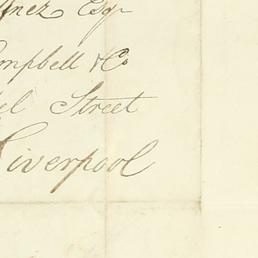 Esqr
mpbell & Co
el Street
Liverpool